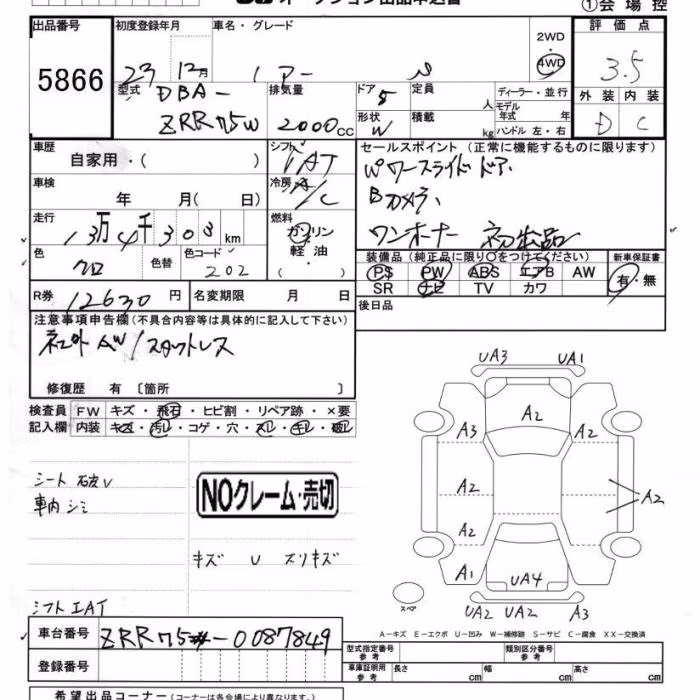 オークション出品申込書
①会場控
出品番号
5866
初度登録年月
車名・グレード
23 12月
ノアー
2WD
4WD
評価点
3.5
型式
DBA-
ZRR75W
排気量
2000cc
ドア
5
定員
人
形状
W
積載
kg
ディーラー・並行
モデル年式 年
ハンドル 左・右
外装 内装
D C
車歴
自家用・( )
シフト
IAT
車検
年 月( 日)
冷房
A/C
走行
13万4千303km
燃料
ガソリン
軽油・
( )
色
クロ
色替
色コード
202
セールスポイント(正常に機能するものに限ります)
Wパワースライドドア
Bカメラ
ワンオーナー 初出品
装備品(純正品に限り○をつけてください)
新車保証書
PS PW ABS エアB AW
SR ナビ TV カワ
有・無
R券
12630円
名変期限 月 日
後日品
注意事項申告欄(不具合内容等は具体的に記入して下さい)
社外AW/スタットレス
修復歴 有 〔箇所 〕
検査員記入欄
FW キズ・飛石・ヒビ割・リペア跡・×要
内装 キズ・汚レ・コゲ・穴・
シート
車内シミ
NOクレーム・売切
キズ U スリキズ
シフトIAT
UA3 UA1
A2
A3 A2
A2 A2
A2
A1 UA4
UA2 UA2 A3
スペア
A-キズ E-エクボ U-凹み W-補修跡 S-サビ C-腐食 XX-交換済
車台番号
ZRR75-0087849
登録番号
型式指定番号 参考
類別区分番号 参考
車庫証明用 参考
長さ cm
幅 cm
高さ cm
希望出品コーナー(コーナーは各会場により異なります。)